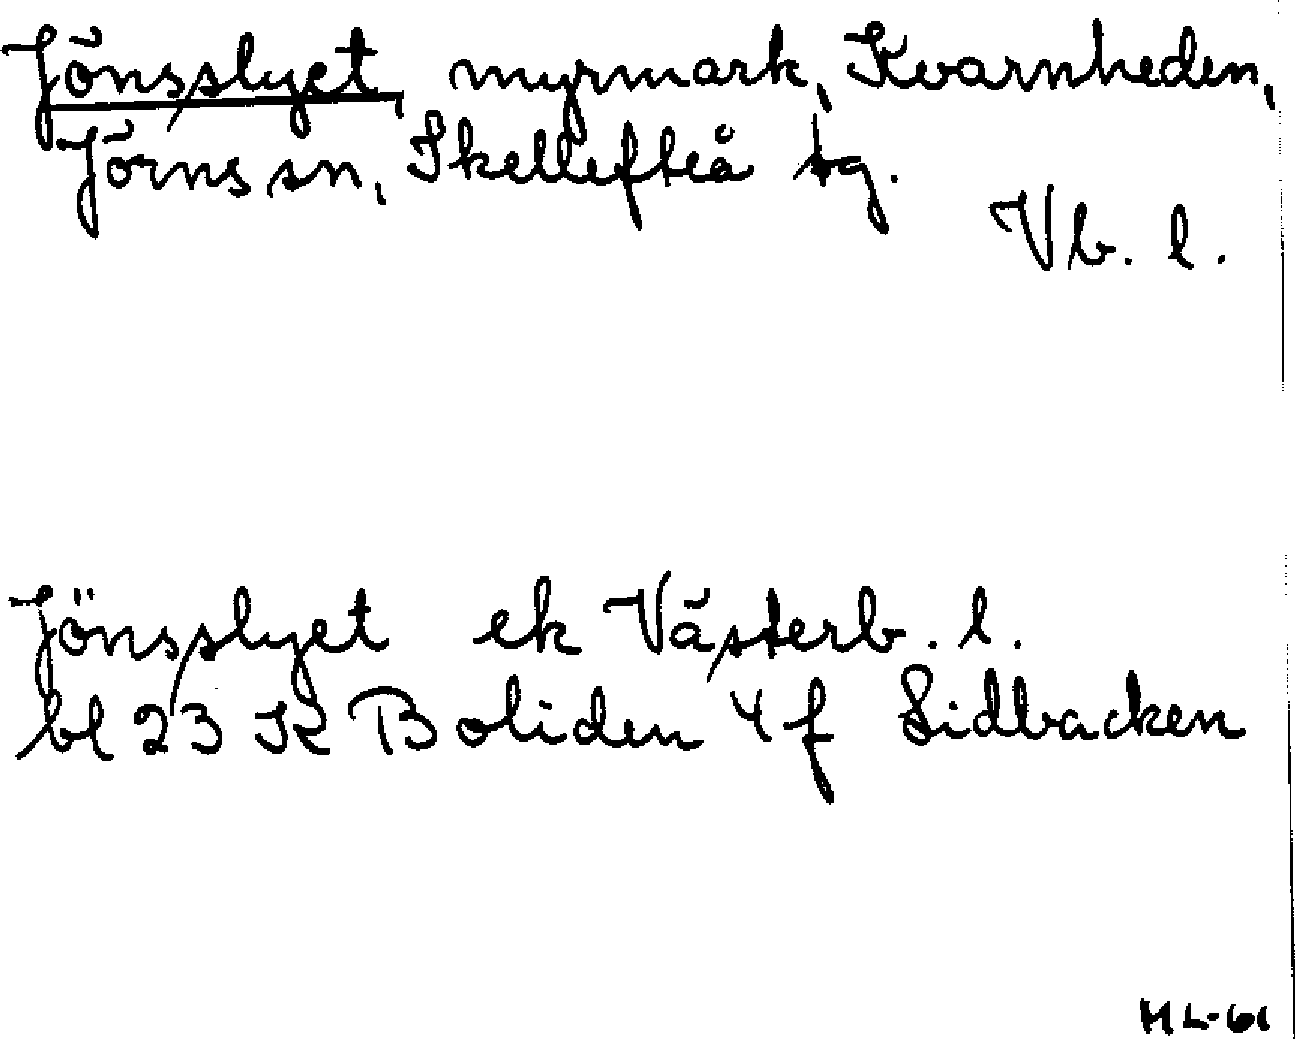 Jönsslyet, myrmark, Kvarnheden,
Jörns sn, Skellefteå tg.
Vb. l.
Jönsslyet ek Västerb. l.
bl 23 K Boliden 4 f Lidbacken
HL-61